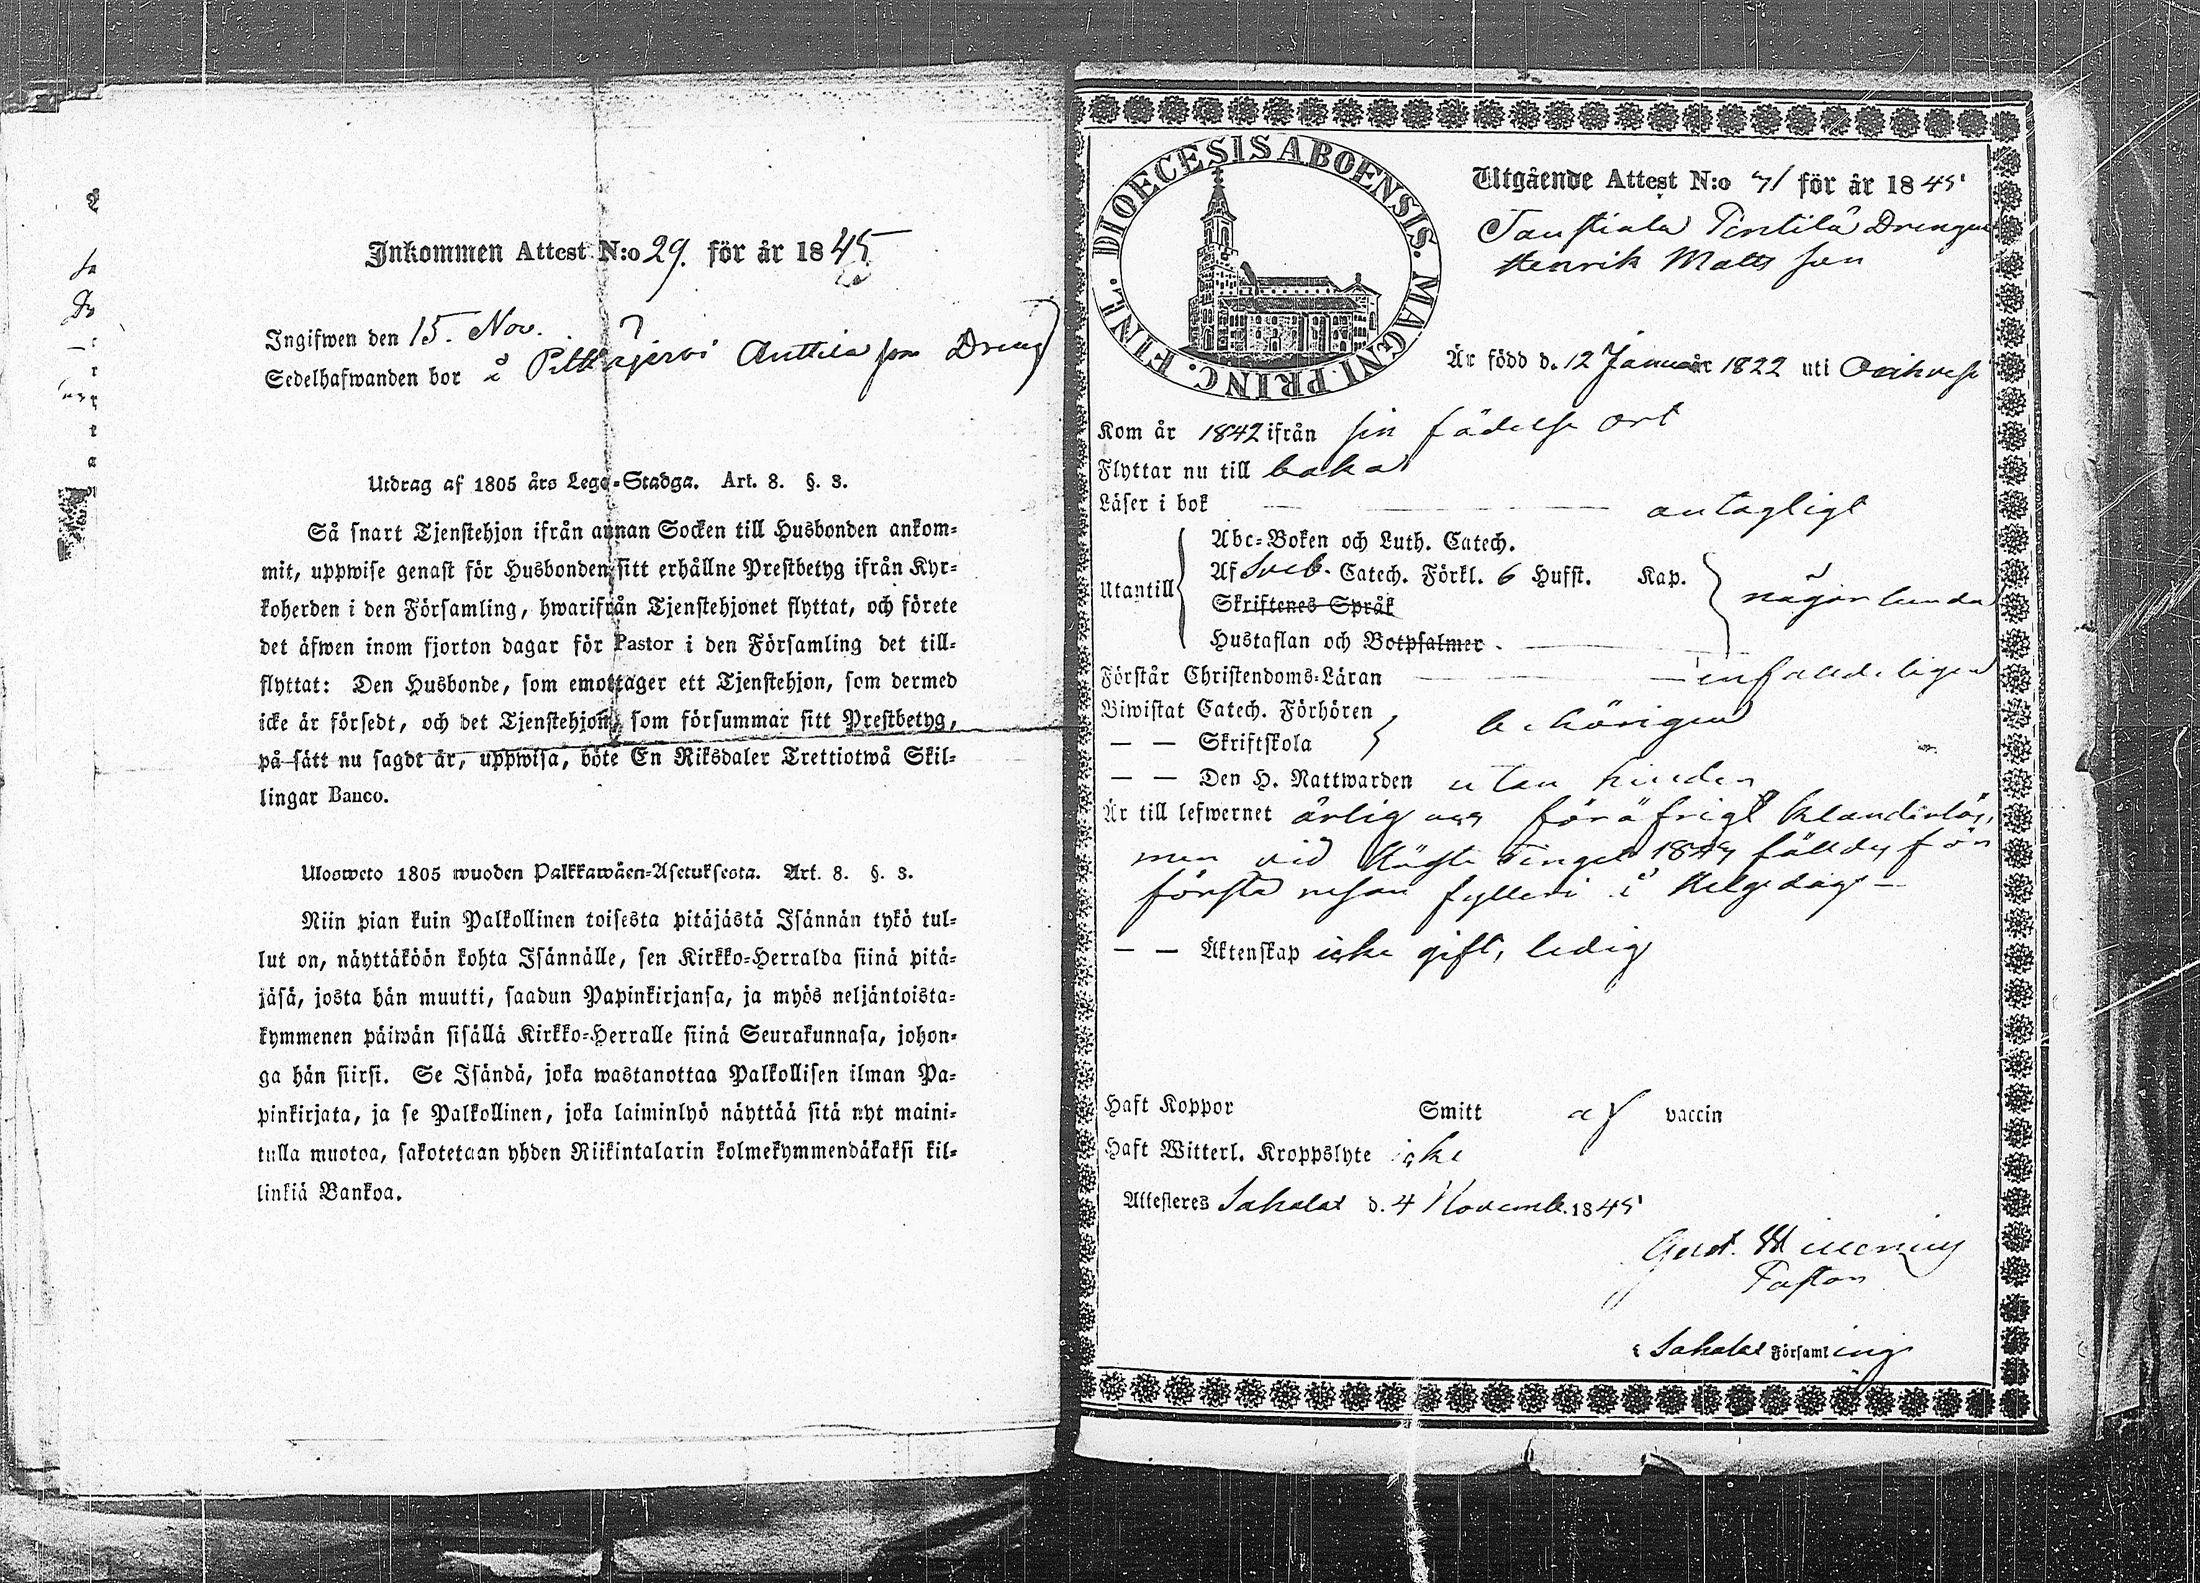 Inkommen Attest N:o 29. för år 1845
Ingifwen den 15. Nov.
Sedelhafwanden bor å Pitkäjervi Anttila som Dreng
Utdrag af 1805 års Lego-Stadga. Art. 8. §. 3.
Så snart Tjenstehjon ifrån annan Socken till Husbonden ankom-
mit, uppwise genast för Husbonden sitt erhållne Prestbetyg ifrån Kyr-
koherden i den Församling, hwarifrån Tjenstehjonet flyttat, och förete
det äfwen inom fjorton dagar för Pastor i den Församling det till-
flyttat: Den Husbonde, som emottager ett Tjenstehjon, som dermed
icke är försedt, och det Tjenstehjon, som försummar sitt Prestbetyg,
på sätt nu sagdt är, uppwisa, böte En Riksdaler Trettiotwå Skil-
lingar Banco.
Ulosweto 1805 wuoden Palkkawäen-Asetuksesta. Art. 8. §. 3.
Niin pian kuin Palkollinen toisesta pitäjästä Isännän tykö tul-
lut on, näyttäköön kohta Isännälle, sen Kirkko-Herralda siinä pitä-
jäsä, josta hän muutti, saadun Papinkirjansa, ja myös neljäntoista-
kymmenen päiwän sisällä Kirkko-Herralle siinä Seurakunnasa, johon-
ga hän siirsi. Se Isändä, joka wastanottaa Palkollisen ilman Pa-
pinkirjata, ja se Palkollinen, joka laiminlyö näyttää sitä nyt maini-
tulla muotoa, sakotetaan yhden Riikintalarin kolmekymmendäkaksi kil-
linkiä Bankoa.
DIOECESIS ABOENSIS. MAGNI. PRINC. FINL.
Utgående Attest N:o 71 för år 1845
Taustiala Pentilä Drengen
Henrik Matts son
Är född d. 12 Januar 1822 uti Orihvesi
Kom år 1842 ifrån sin födelse ort
Flyttar nu till baka
Läser i bok antagligt
Utantill
Abc-Boken och Luth. Catech.
Af Sveb. Catech. Förkl. 6 Hufst. Kap.
Skriftenes Språk
Hustaflan och Botpsalmer
någorlunda
Förstår Christendoms-Läran enfaldeligen
Biwistat Catech. Förhören
— — Skriftskola
behörigen
— — Den H. Nattwarden utan hinder
Är till lefwernet ärlig och föröfrigt klanderlös,
men vid Högste Tinget 1844 fälldes för
första resan fylleri å Helgedag —
— — Äktenskap icke gift, ledig
Haft Koppor Smitt af vaccin
Haft Witterl. Kroppslyte icke
Attesteres Sahalax d. 4 Novemb. 1845
Gust.
Pastor
i Sahalax Församling